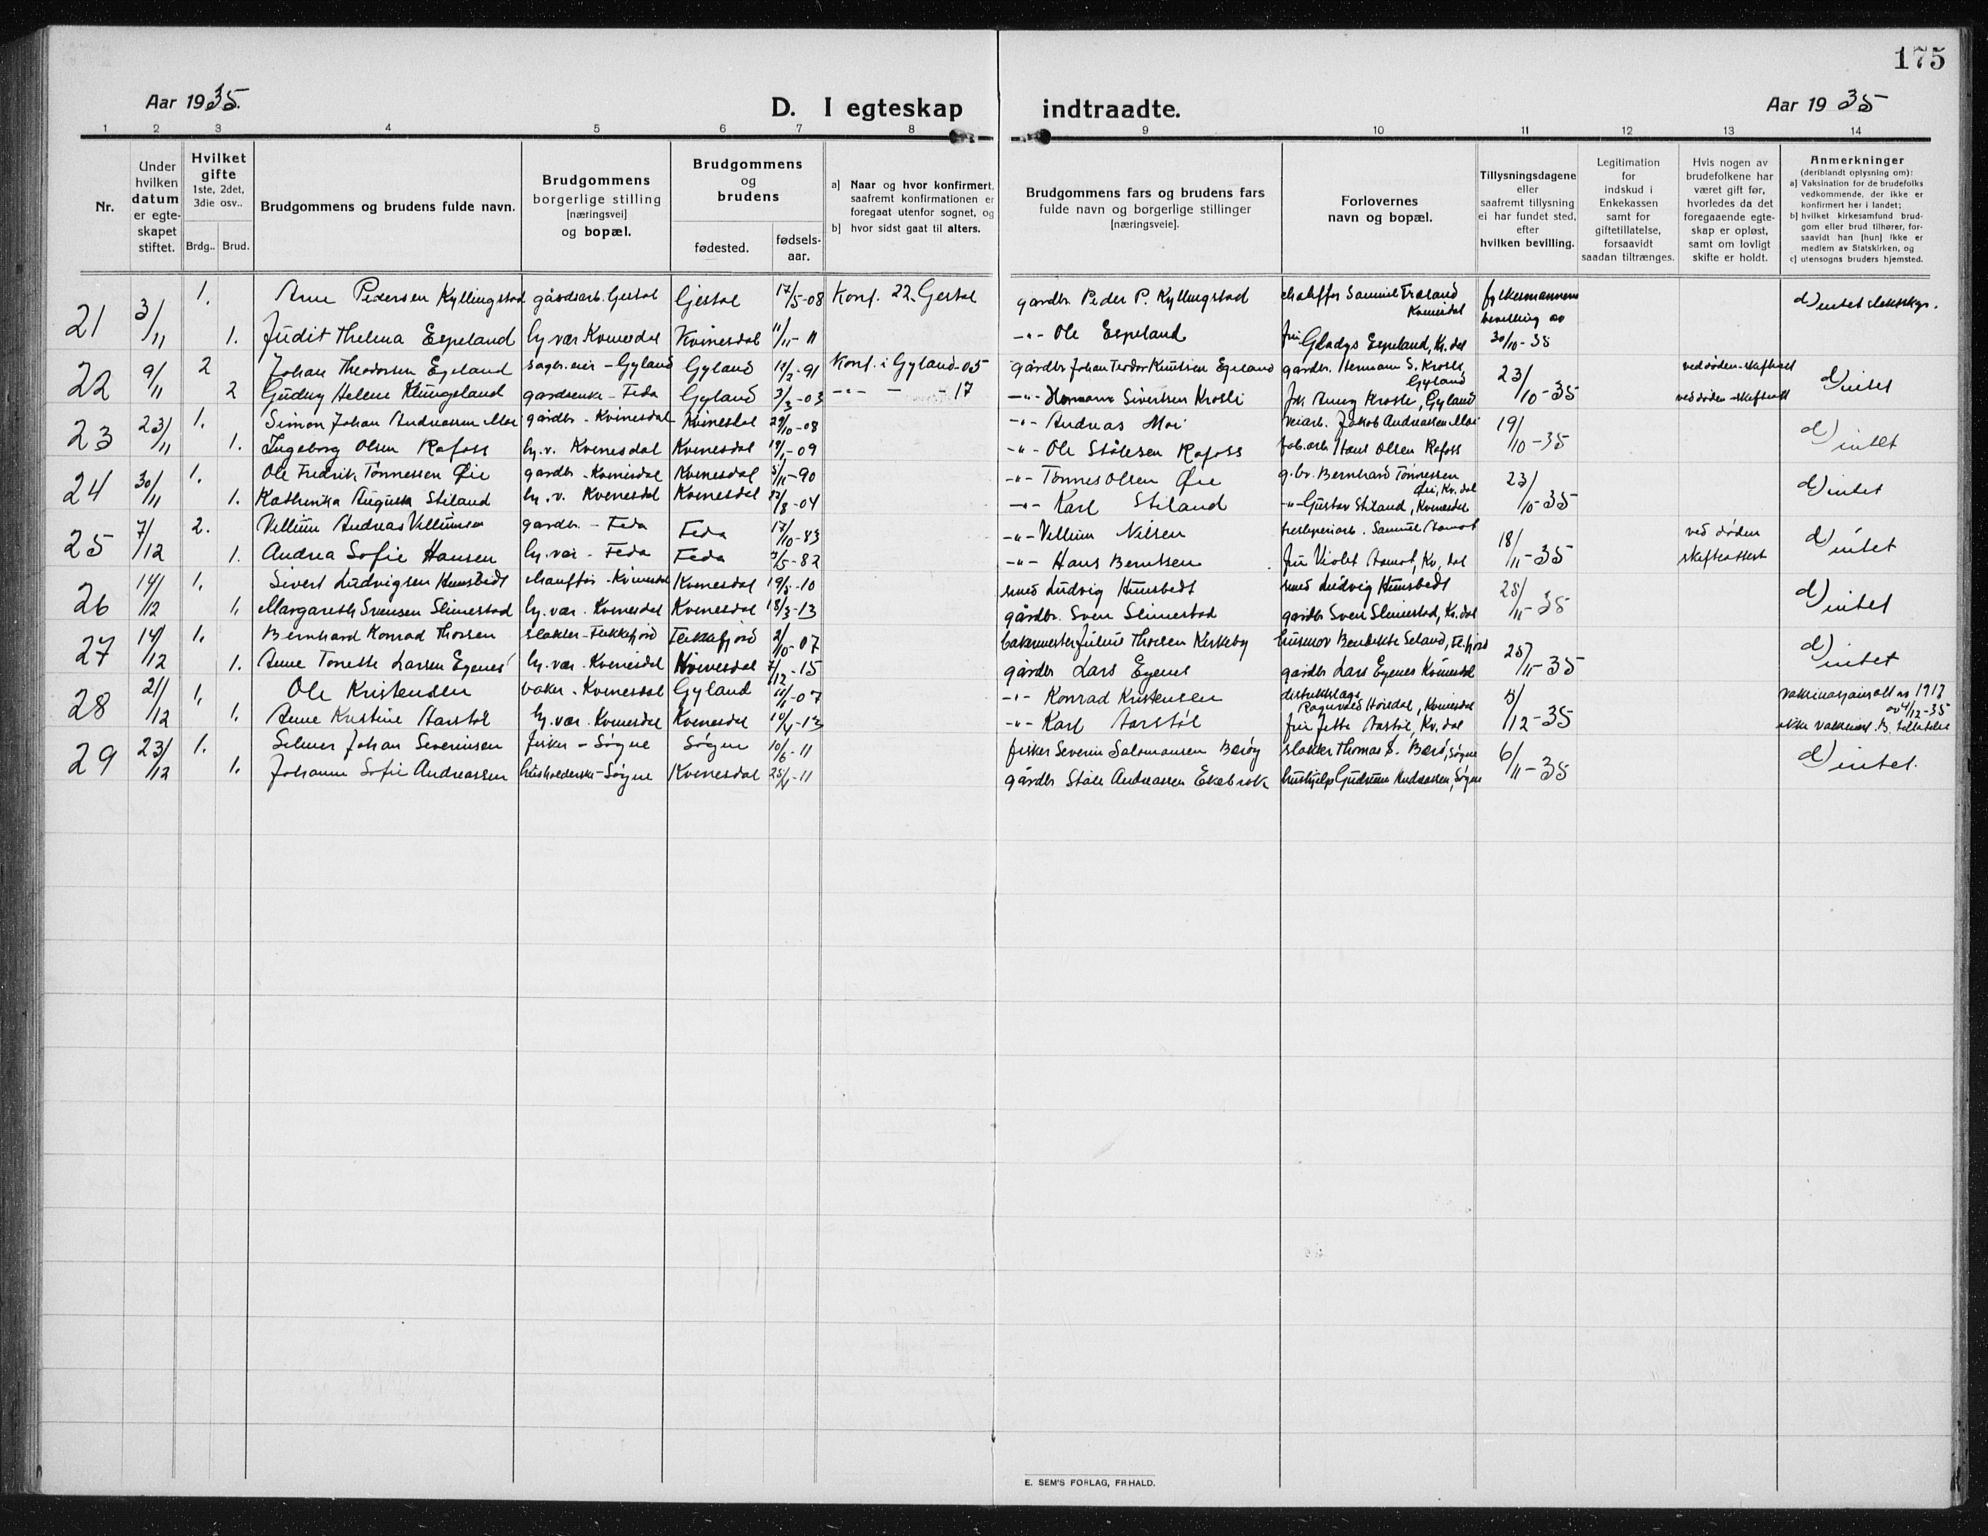 175
Aar 1935.
D. I egteskap indtraadte.
Aar 1935
1 2 3 4 5 6 7 8 9 10 11 12 13 14
Nr.
Under hvilken datum er egteskapet stiftet.
Hvilket gifte 1ste, 2det, 3die osv..
Brdg.. Brud.
Brudgommens og brudens fulde navn.
Brudgommens borgerlige stilling [næringsvei] og bopæl.
Brudgommens og brudens
fødested. fødselsaar.
a) Naar og hvor konfirmert, saafremt konfirmationen er foregaat utenfor sognet, og
b) hvor sidst gaat til alters.
Brudgommens fars og brudens fars fulde navn og borgerlige stillinger [næringsveie].
Forlovernes navn og bopæl.
Tillysningsdagene eller saafremt tillysning ei har fundet sted, efter hvilken bevilling.
Legitimation for indskud i Enkekassen samt for giftetillatelse, forsaavidt saadan tiltrænges.
Hvis nogen av brudefolkene har været gift før, hvorledes da det foregaaende egteskap er opløst, samt om lovligt skifte er holdt.
Anmerkninger (deriblandt oplysning om):
a) Vaksination for de brudefolks vedkommende, der ikke er konfirmert her i landet;
b) hvilket kirkesamfund brudgom eller brud tilhører, forsaavidt han [hun] ikke er medlem av Statskirken, og
c) utensogns bruders hjemsted.
21 3/11 1. Arne Pedersen Kyllingstad gårdsarb. Gjestal Gjestal 17/5-08 Konf. 22. Gjestal gårdbr. Peder P. Kyllingstad Samuel Kvinesdal fylkesmannens bevilling av 30/10-35 d) intet
1. Judit Thelma Espeland hj. vær. Kvinesdal Kvinesdal 11/11-11 -"- Ole Espeland frk. Gladys Espeland, Kv.dal
22 9/11 2 Johan Theodorsen Egeland sagbr.eier - Gyland Gyland 12/2-91 Konf. i Gyland-05 gårdbr. Johan Teodor Knutsen Egeland gårdbr. Hermann S. Krosli, Gyland 23/10-35 ved døden - skifteatt d) intet
2 Gudny Helene Klungeland Feda Gyland 3/3-03 -"- - - 17 -"- Hermann Sivertsen Krosli frk. Anny Krosli, Gyland ved døden - skifteatt
23 23/11 1. Simon Johan Andreassen Moi gårdbr. - Kvinesdal Kvinesdal 29/10-08 -"- Andreas Moi veiarb. Jakob Andreassen Moi 19/10-35 d) intet
1. Ingeborg Olsen Rafoss hj. v. Kvinesdal Kvinesdal 19/1-09 -"- Ole Stålesen Rafoss fab.arb. Hans Olsen Rafoss
24 30/11 1. Ole Fredrik Tønnessen Øie gårdbr. - Kvinesdal Kvinesdal 5/11-90 -"- Tønnes Olsen Øie g.br. Bernhard Tønnessen Øie, Kv.dal 23/10-35 d) intet
1. Kathinka Augusta Stiland hj. v. Kvinesdal Kvinesdal /8-04 -"- Karl Stiland -"- Gustav Stiland, Kvinesdal
25 7/12 2. Villum Andreas Villumsen gårdbr. - Feda Feda 17/10-83 -"- Villum Nilsen Samuel Aamot 18/11-35 ved døden skifteattest d) intet
1. Andrea Sofie Hansen hj. vær. - Feda Feda /5-82 -"- Hans Berntsen frk. Violet Aamot, Kv.dal
26 14/12 1. Sivert Ludvigsen Hunsbedt chauffør - Kvinesdal Kvinesdal 19/8-10 smed Ludvig Hunsbedt smed Ludvig Hunsbedt 25/11-35 d) intet
1. Margareth Svensen Slimestad hj. vær. Kvinesdal Kvinesdal 18/3-13 gårdbr. Sven Slimestad gårdbr Sven Slimestad, Kv.dal
27 14/12 1. Bernhard Konrad Thorsen slakter - Flekkefjord Flekkefjord 2/10-07 bakermester Julius Thorsen Kirkeby husmor Bendikte Seland, Fl.fjord 25/11-35 d) intet
1. Anne Tonette Larsen Egenes hj. vær. Kvinesdal Kvinesdal 7/12-15 gårdbr Lars Egenes gårdbr Lars Egenes Kvinesdal
28 21/12 1. Ole Kristensen baker - Kvinesdal Gyland 11/1-07 -"- Konrad Kristensen distriktslæge Ragnvald Kvinesdal 5/12-35 vaksinasjonsatt av 1917 av 4/12-35
1. Anne Kristine Aarstøl hj. vær. Kvinesdal Kvinesdal 14/4-13 -"- Karl Aarstøl Jette Aarstøl, Kv.dal ikke vaksinert
29 23/12 1. Selmer Johan Severinsen fisker - Søgne Søgne 10/6-11 fisker Severin Salomonsen Borøy slakter Thomas S. Borø, Søgne 6/11-35 d) intet.
1. Johanne Sofie Andreassen husholderske - Søgne Kvinesdal 25/4-11 gårdbr Ståle Andreassen Ekebrok hushjelp Gudrun Andreassen, Søgne
E. SEM'S FORLAG, FR.HALD.